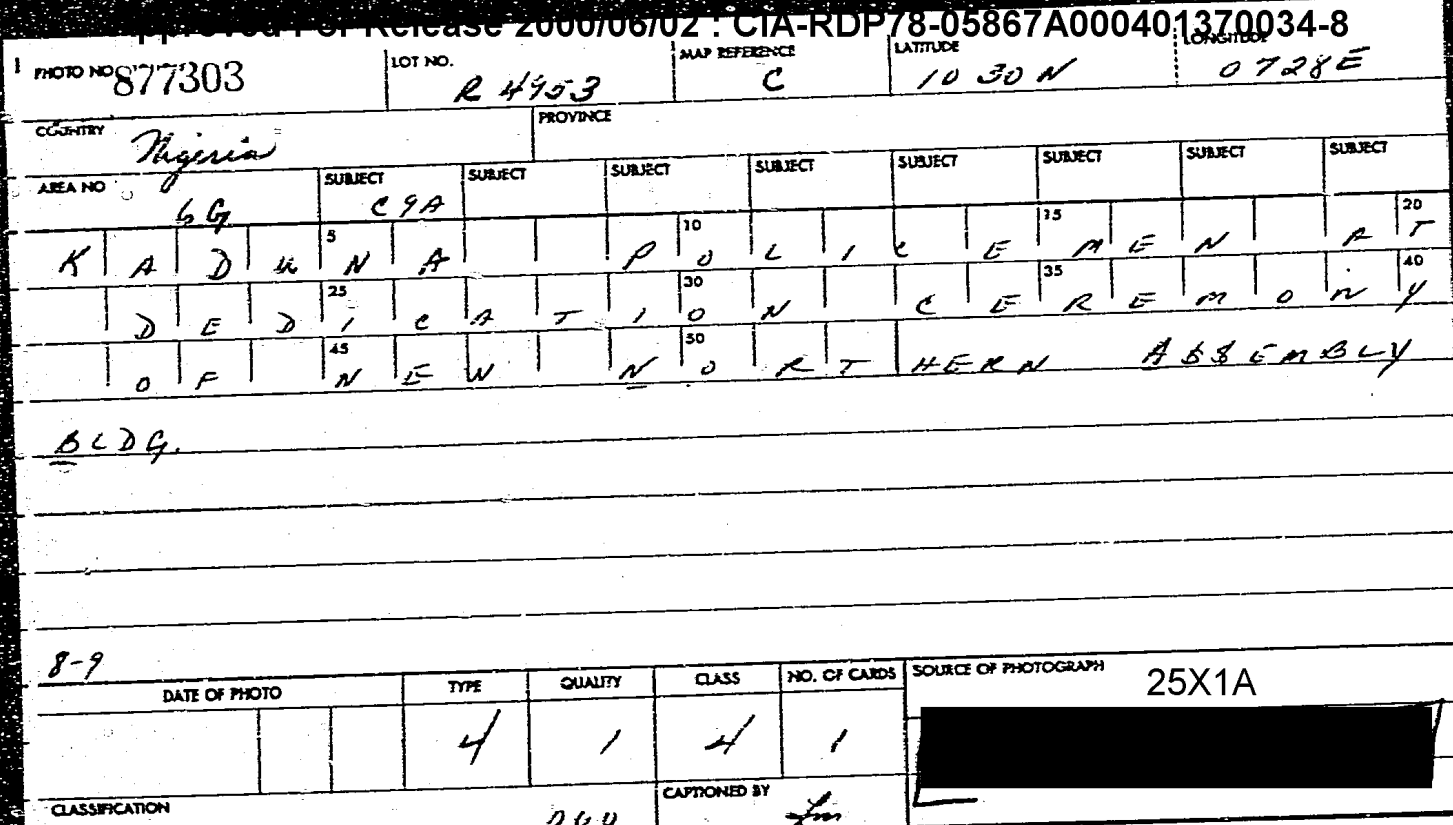 Approved For Release 2000/06/02 : CIA-RDP78-05867A000401370034-8
1 PHOTO NO 877303 LOT NO. R 4953 MAP REFERENCE C LATITUDE 10 30 N LONGITUDE 0728E
COUNTRY Nigeria PROVINCE
AREA NO 6G SUBJECT C9A SUBJECT SUBJECT SUBJECT SUBJECT SUBJECT SUBJECT SUBJECT
5 10 15 20
KADUNA POLICE MEN AT
25 30 35 40
DEDICATION CEREMONY
45 50
OF NEW NORTHERN ASSEMBLY
BLDG.
8-9
DATE OF PHOTO TYPE QUALITY CLASS NO. OF CARDS SOURCE OF PHOTOGRAPH 25X1A
4 1 4 1
CLASSIFICATION CAPTIONED BY